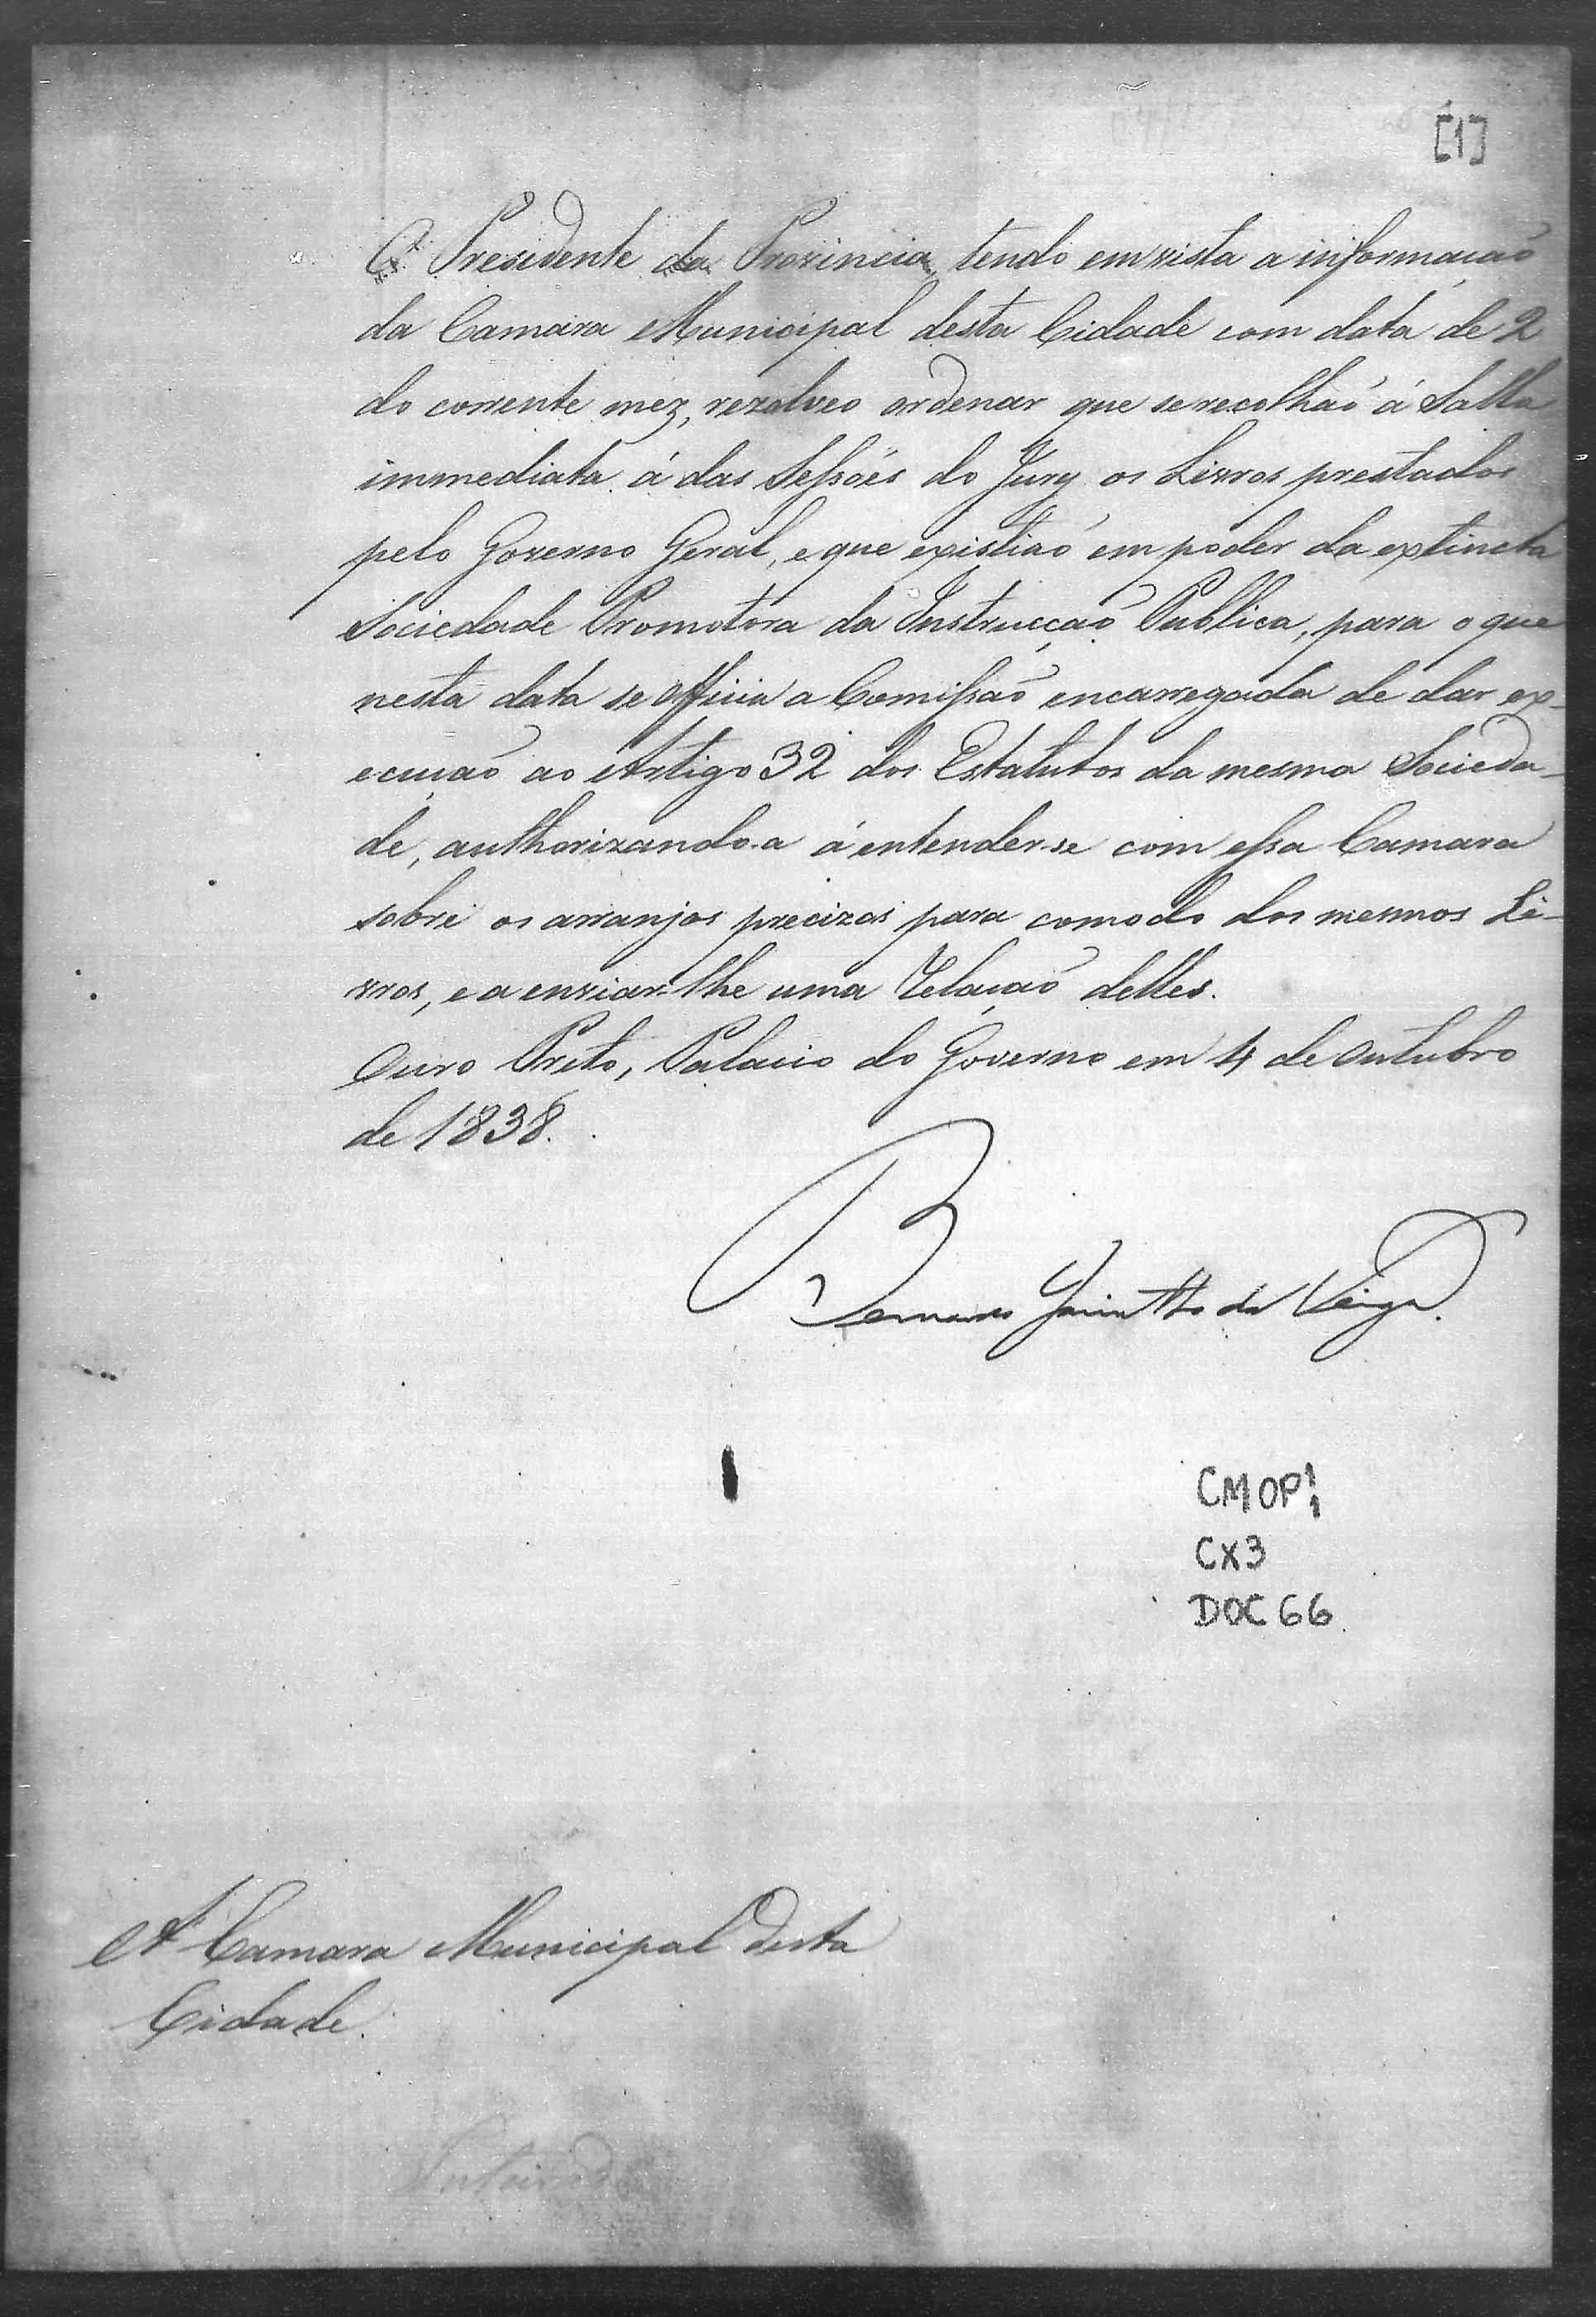 [1]
O Presidente da Provincia, tendo em vista a informação
da Camara Municipal desta Cidade com data de 2
do corrente mez, rezolveo ordenar que se recolhaõ á Salla
immediata á das Seſsões do Jury os Livros prestados
pelo Governo Geral, e que existiaõ em poder da extincta
Sociedade Promotora da Instrucçaõ Publica, para o que
nesta data se officia a Comiſsaõ encarregada de dar ex-
ecuçaõ ao Artigo 32 dos Estatutos da mesma Socieda-
de, authorizando-a á entender-se com eſsa Camara
sobre os arranjos precizos para comodo dos mesmos Li-
vros, e a enviar-lhe uma Relaçaõ delles.
Ouro Preto, Palacio do Governo em 4 de Outubro
de 1838.
Bernardo Jacintho da Veiga.
CMOP 1/1
CX3
DOC 66
A' Camara Municipal desta
Cidade.
Inteirada